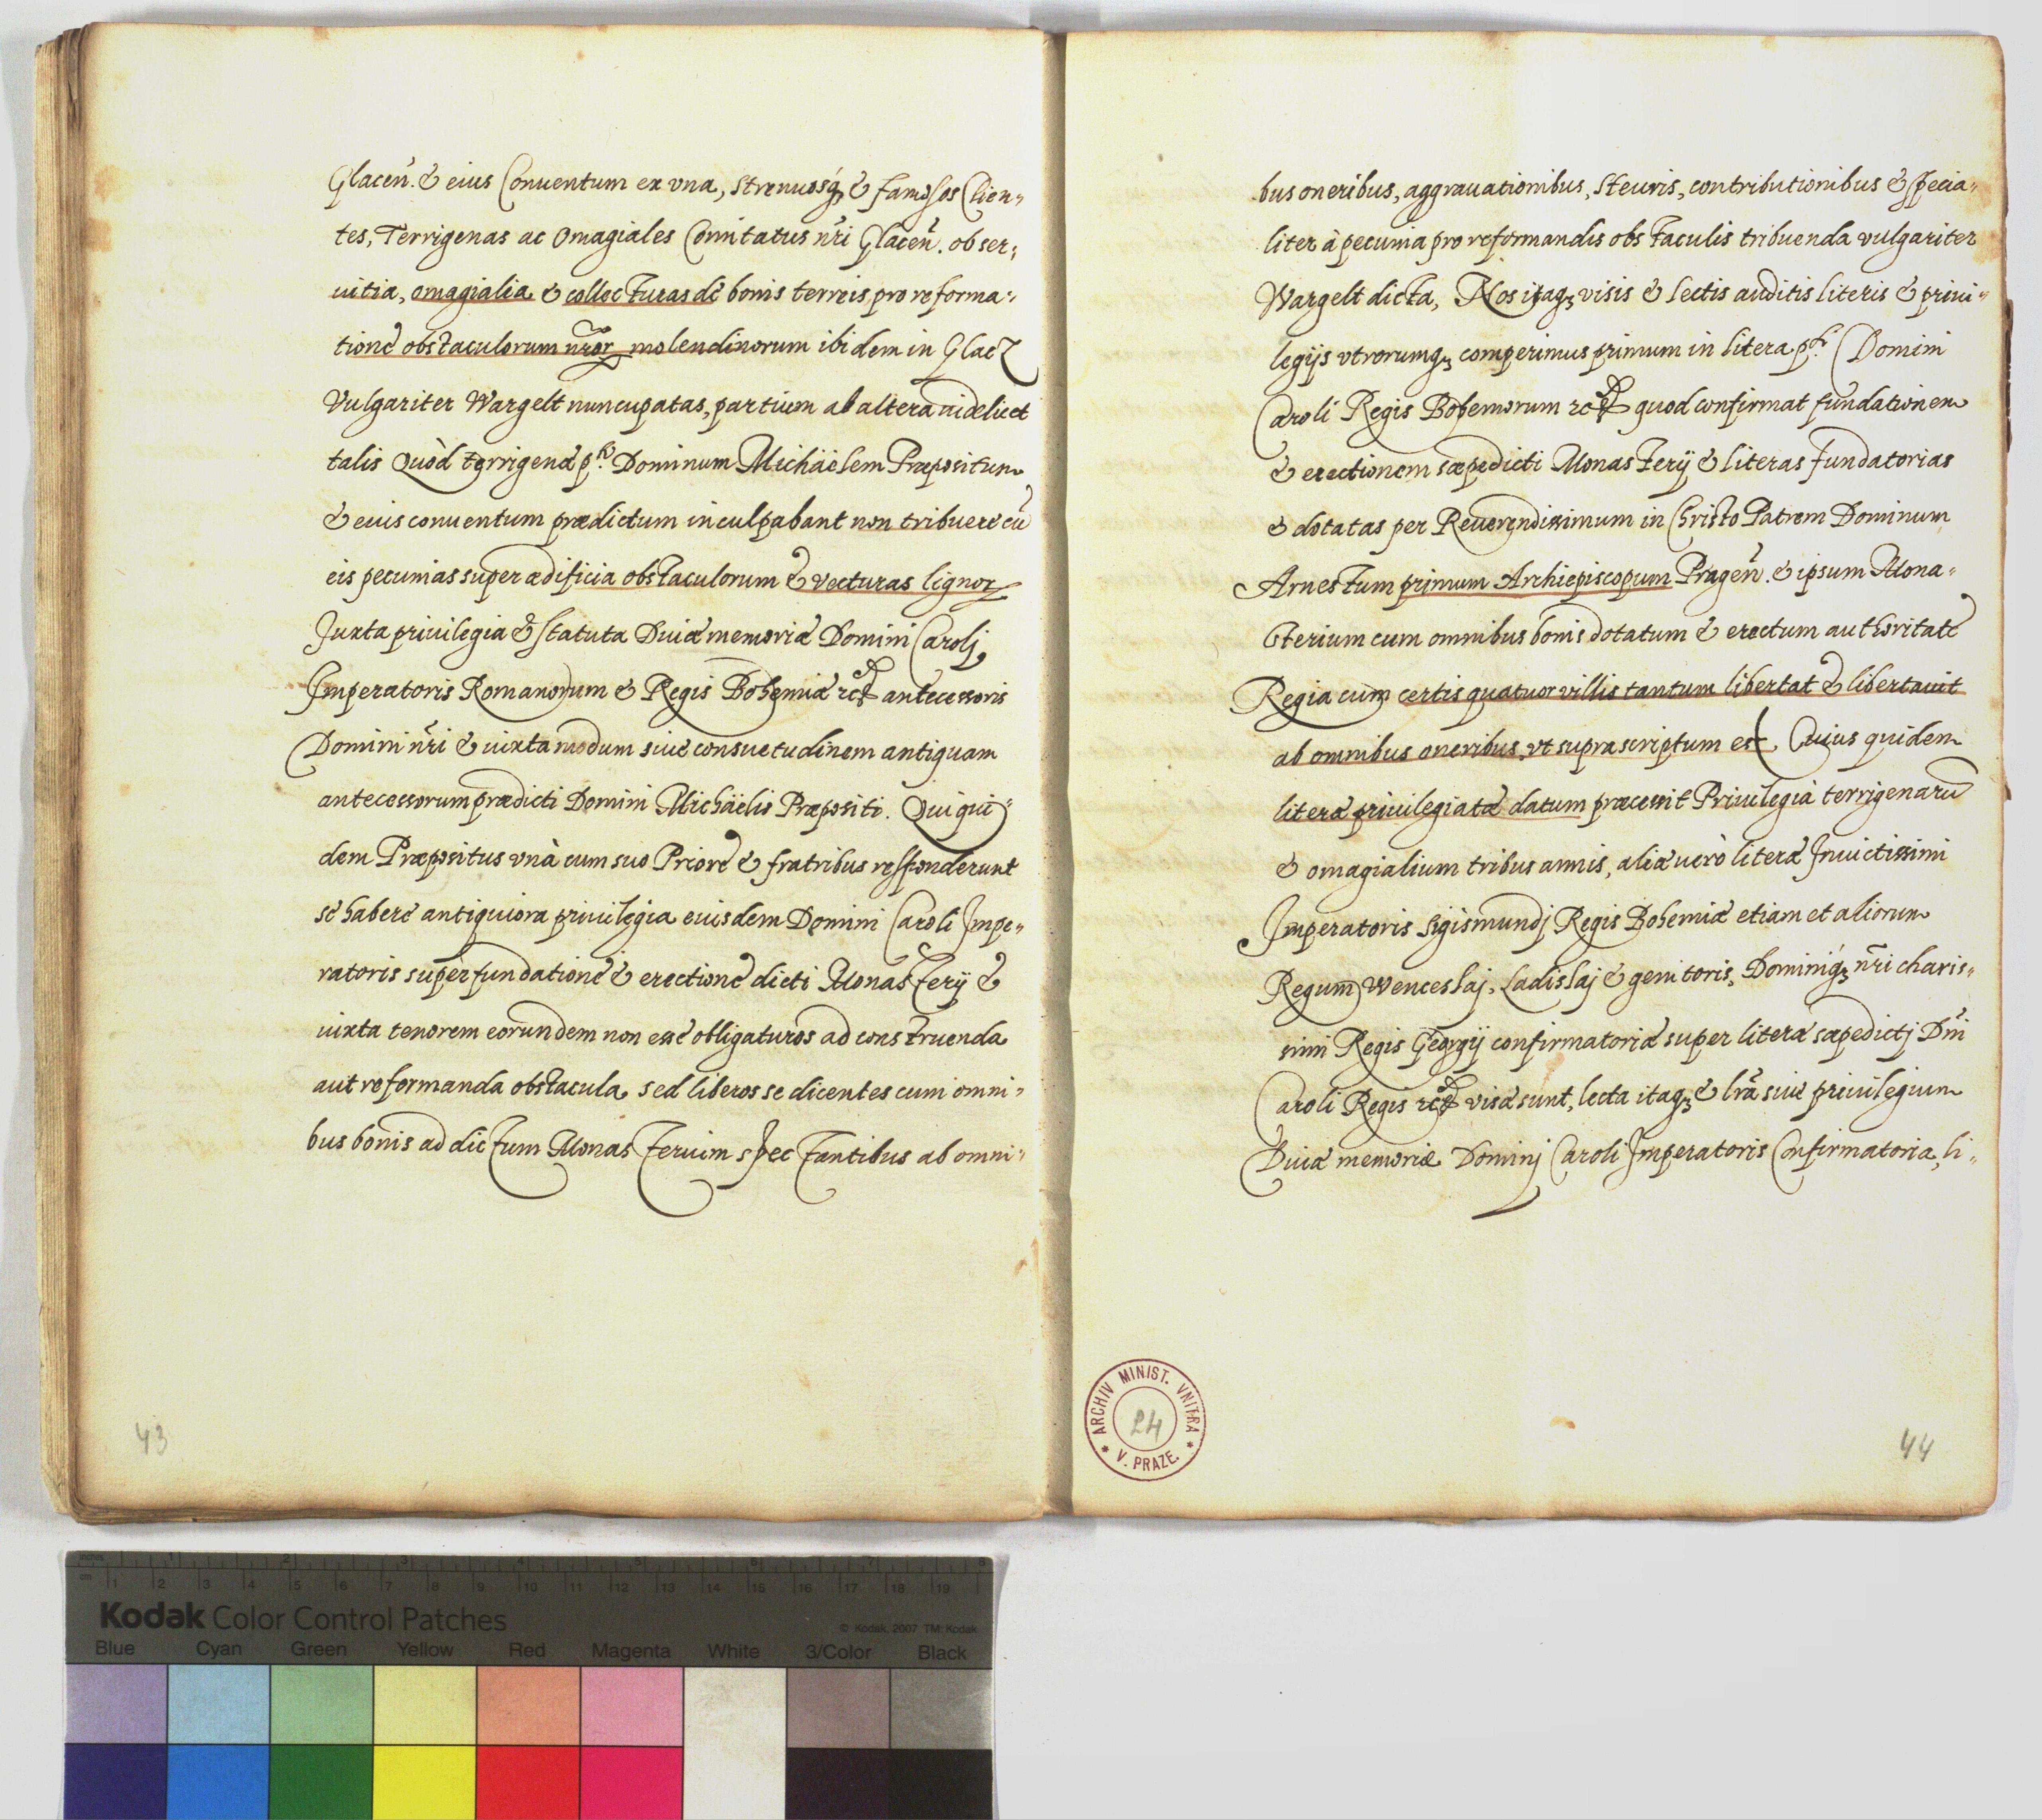 Glaceñ. & eius Conuentum ex vna, strenuosq́ꝫ & famosos Clien-
tes, Terrigenas ac Omagiales Comitatus nr̃i Glaceñ. ob ser-
uitia, omagialia & collecturas de bonis terreis pro reforma-
tione obstaculorum nr̃orꝝ molendinorum ibidem in Glacz
Vulgariter Wargelt nuncupatas, partium ab altera uidelicet
talis Quòd terrigenæ Dominum Michäelem Præpositum
& eius conuentum prædictum inculpabant non tribuere cũ
eis pecunias super ædificia obstaculorum & vecturas lignorꝝ
Juxta priuilegia & statuta Diuæ memoriæ Domini Carolj
Imperatoris Romanorum & Regis Bohemiæ ꝛcꝫ antecessoris
Domini nr̃i & iuxta modum siue consuetudinem antiquam
antecessorum prædicti Domini Michäelis Præpositi. Qui qui-
dem Præpositus vnà cum suo Priore & fratribus responderunt
se habere antiquiora priuilegia eiusdem Domini Caroli Impe-
ratoris super fundatione & erectione dicti Monasterij &
iuxta tenorem eorundem non esse obligaturos ad construenda
aut reformanda obstacula, sed liberos se dicentes cum omni-
bus bonis ad dictum Monasterium spectantibus ab omni-
43
bus oneribus, aggrauationibus, steuris, contributionibus & specia-
liter à pecunia pro reformandis obstaculis tribuenda vulgariter
Wargelt dicta, Nos itaqꝫ visis & lectis auditis literis & priui-
legijs vtrorumqꝫ comperimus primum in litera Domini
Caroli Regis Bohemorum ꝛcꝫ quod confirmat fundationem
& erectionem sæpedicti Monasterij & literas fundatorias
& dotatas per Reuerendissimum in Christo Patrem Dominum
Arnestum primum Archiepiscopum Prageñ. & ipsum Mona-
sterium cum omnibus bonis dotatum & erectum authoritate
Regia cum certis quatuor villis tantum libertat & libertauit
ab omnibus oneribus, vt supra scriptum est, Cuius quidem
literæ priuilegiatæ datum præcessit Priuilegia terrigenarũ
& omagialium tribus annis, aliæ uerò literæ Inuictissimi
Imperatoris Sigismundj Regis Bohemiæ etiam et aliorum
Regum Wenceslaj, Ladislaj & genitoris, Dominiq́ꝫ nr̃i charis-
simi Regis Georgij confirmatoriæ super literæ sæpedictj Dñi
Caroli Regis ꝛcꝫ visæ sunt, lecta itaqꝫ & lr̃a siue priuilegium
Diuæ memoriæ Dominj Caroli Imperatoris Confirmatoria, li-
ARCHIV MINIST. VNITRA
V. PRAZE.
24
44
inches 1 2 3 4 5 6 7 8
cm 1 2 3 4 5 6 7 8 9 10 11 12 13 14 15 16 17 18 19
Kodak Color Control Patches
© Kodak, 2007 TM: Kodak
Blue Cyan Green Yellow Red Magenta White 3/Color Black